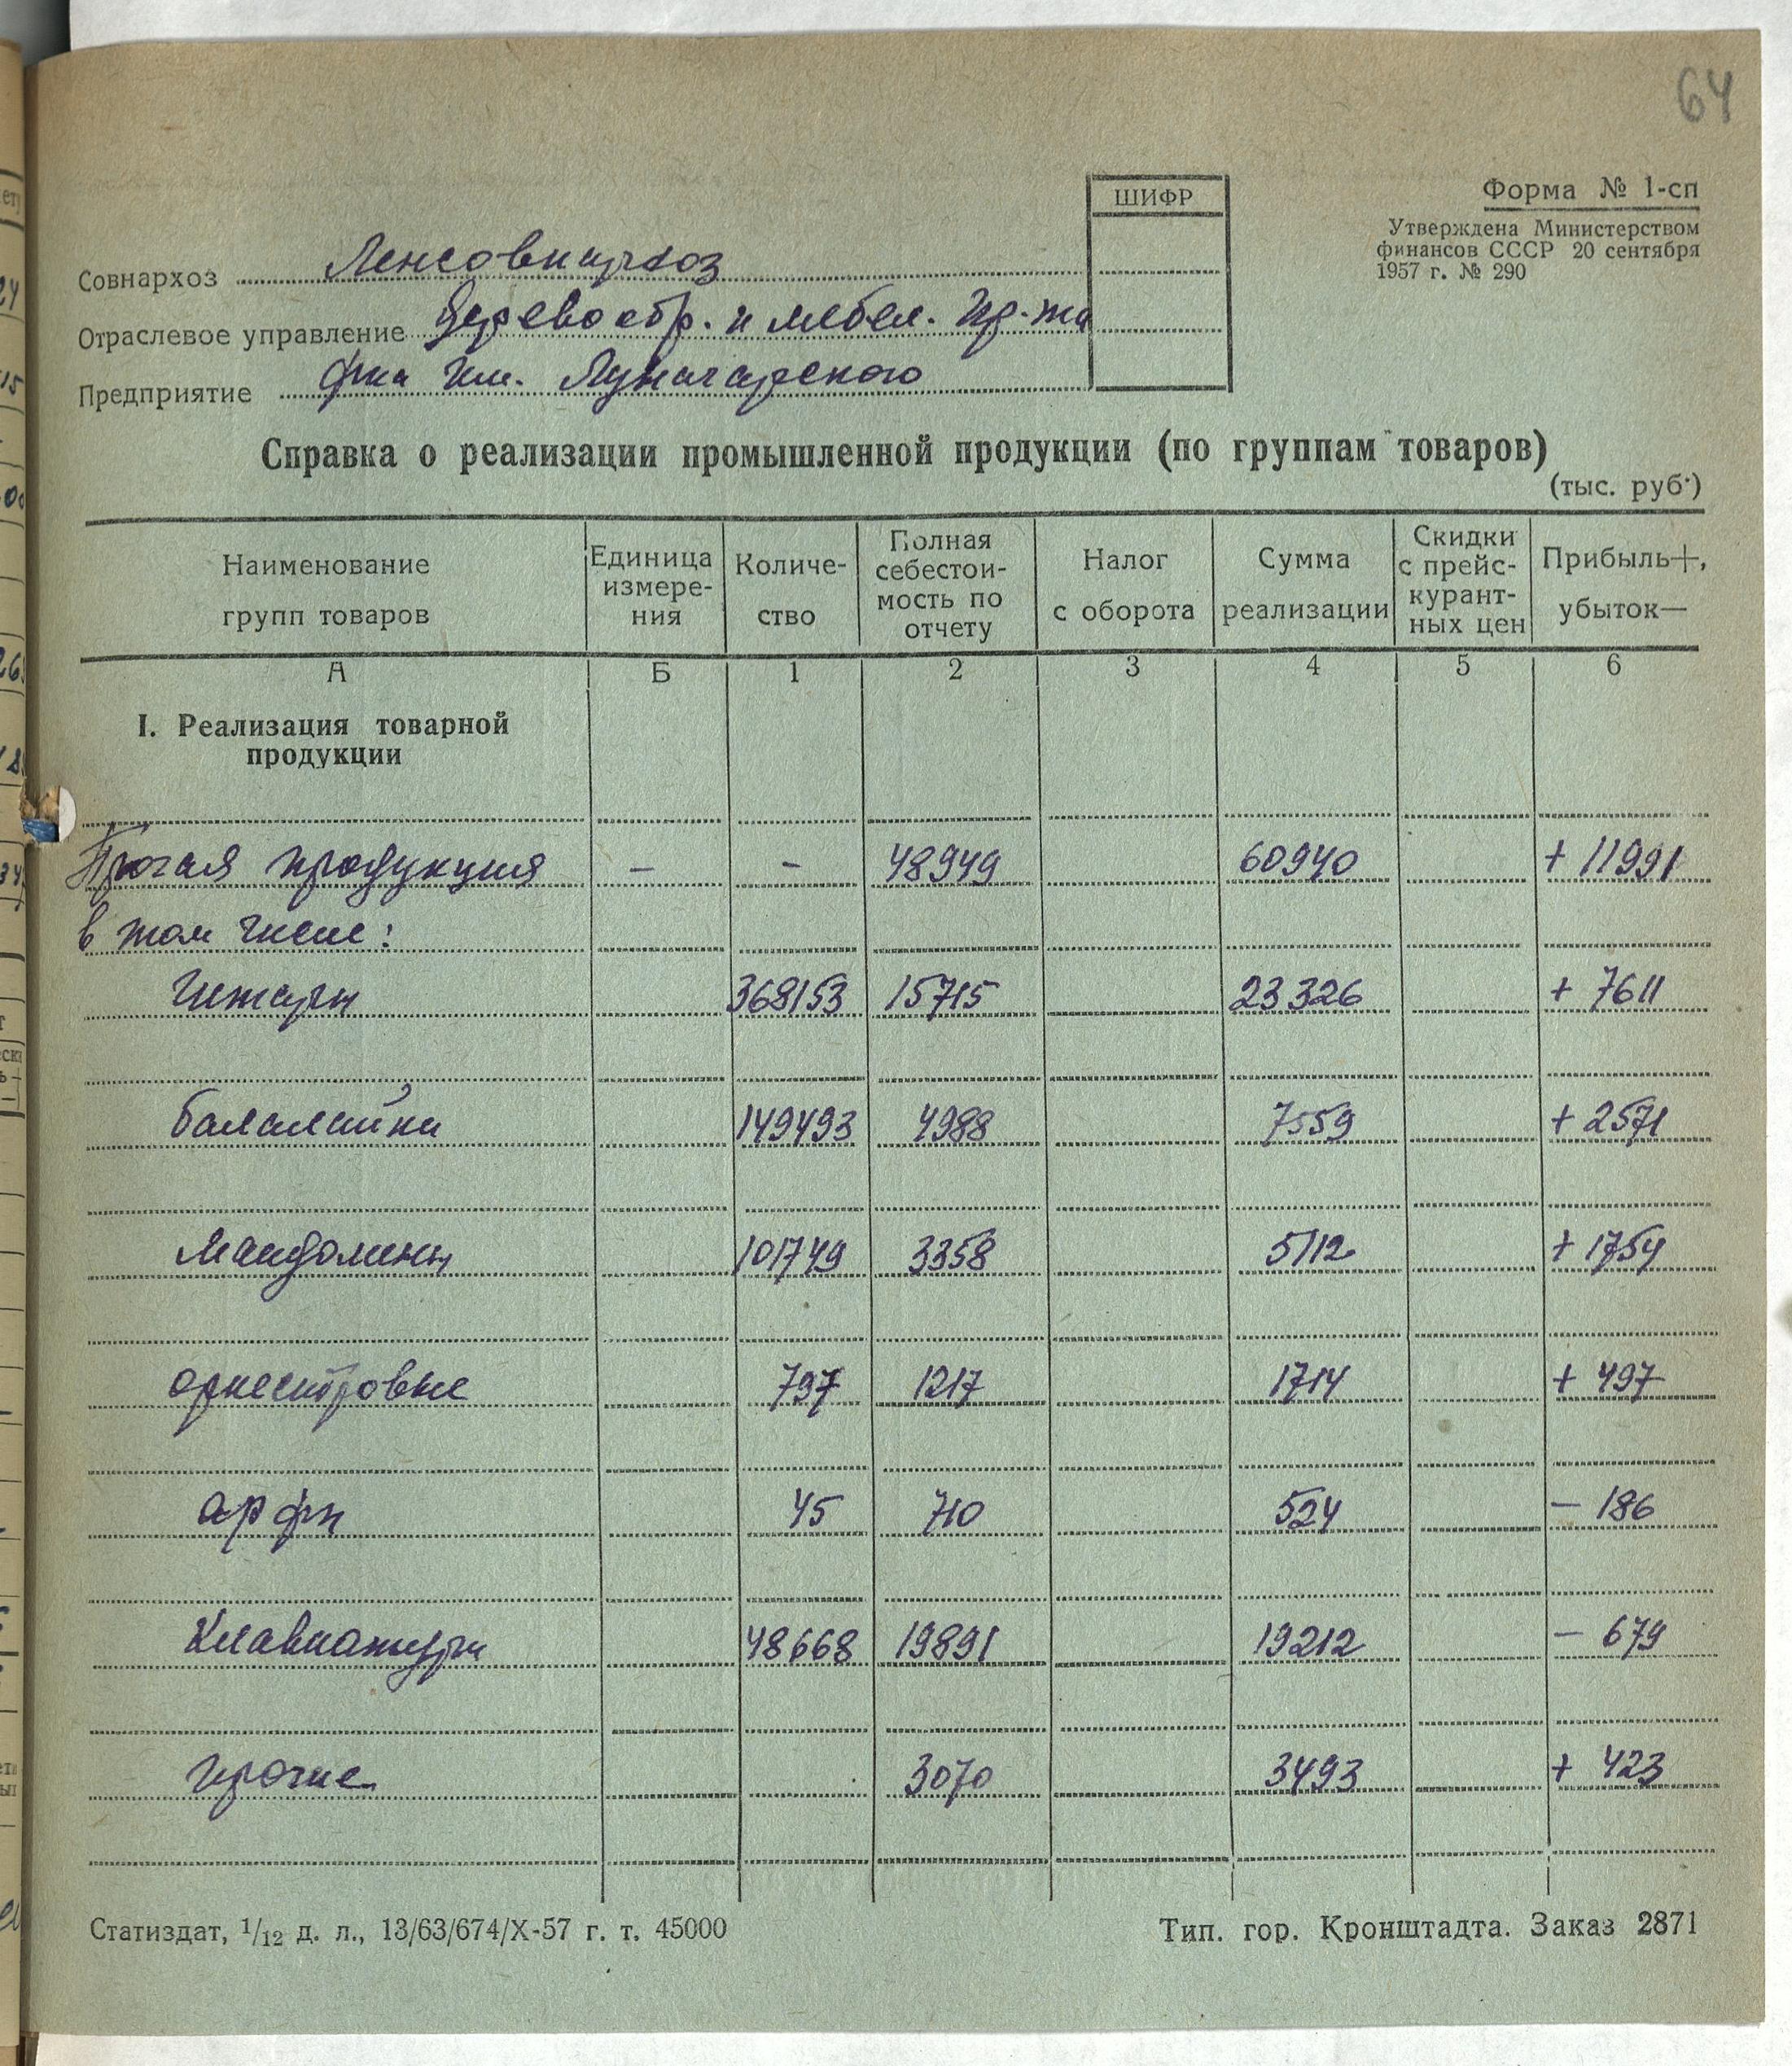 64
ШИФР
Форма № 1-сп
Утверждена Министерством
финансов СССР 20 сентября
1957 г. № 290
Совнархоз Ленсовнархоз
Отраслевое управление деревообр. и мебел. пр-та
Предприятие ф-ка им. Луначарского
Справка о реализации промышленной продукции (по группам товаров)
(тыс. руб.)
Наименование групп товаров | Единица измере-ния | Количе-ство | Полная себестои-мость по отчету | Налог с оборота | Сумма реализации | Скидки с прейс-курант-ных цен | Прибыль+, убыток—
А Б 1 2 3 4 5 6
I. Реализация товарной
продукции
Прочая продукция – – 48949 60940 + 11991
в том числе:
гитары 368153 15715 23326 + 7611
балалайки 149493 4988 7559 + 2571
мандолины 101749 3358 5112 + 1754
оркестровые 797 1217 1714 + 497
арфы 45 710 524 – 186
Клавиатуры 48668 19891 19212 – 679
прочие 3070 3493 + 423
Статиздат, 1/12 д. л., 13/63/674/X-57 г. т. 45000
Тип. гор. Кронштадта. Заказ 2871